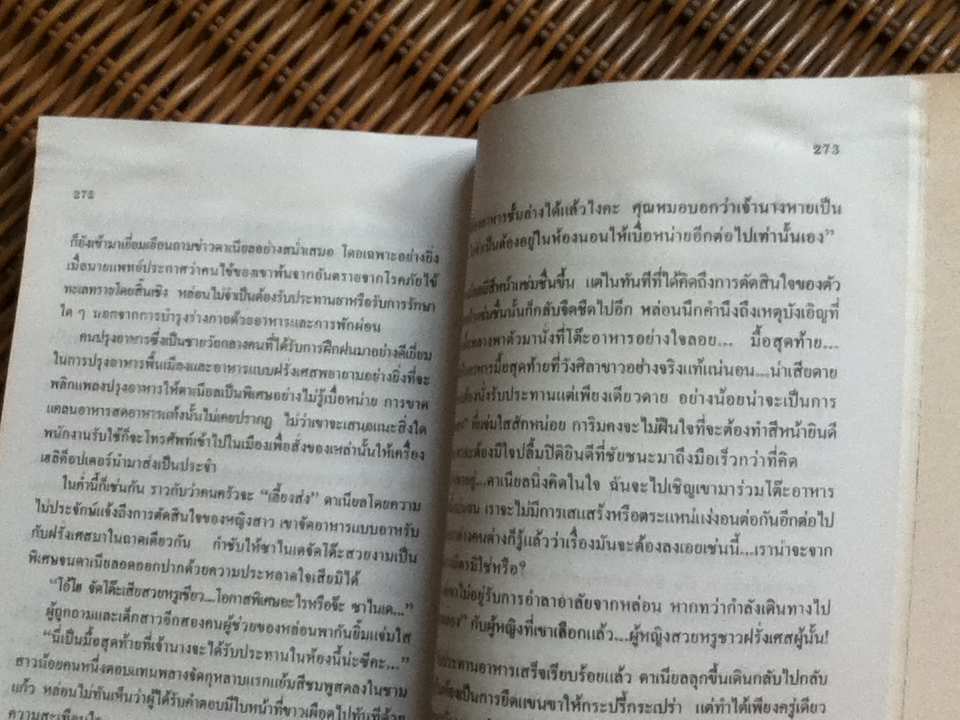 272
ก็ยังเข้ามาเยี่ยมเยือนถามข่าวดาเนียลอย่างสม่ำเสมอ โดยเฉพาะอย่างยิ่ง
เมื่อนายแพทย์ประกาศว่าคนไข้ของเขาพ้นจากอันตรายจากโรคภัยไข้
ทะเลทรายโดยสิ้นเชิง หล่อนไม่จำเป็นต้องรับประทานยาหรือรับการรักษา
ใด ๆ นอกจากการบำรุงร่างกายด้วยอาหารและการพักผ่อน
คนปรุงอาหารซึ่งเป็นชายวัยกลางคนที่ได้รับการฝึกฝนมาอย่างดีเยี่ยม
ในการปรุงอาหารพื้นเมืองและอาหารแบบฝรั่งเศสพยายามอย่างยิ่งที่จะ
พลิกแพลงปรุงอาหารให้ดาเนียลเป็นพิเศษอย่างไม่รู้เบื่อหน่าย การขาด
แคลนอาหารสดอาหารแห้งนั้นไม่เคยปรากฏ ไม่ว่าเขาจะเสนอแนะสิ่งใด
พนักงานรับใช้ก็จะโทรศัพท์เข้าไปในเมืองเพื่อสั่งของเหล่านั้นให้เครื่อง
เฮลิค็อปเตอร์นำมาส่งเป็นประจำ
ในค่ำนี้ก็เช่นกัน ราวกับว่าคนครัวจะ “เลี้ยงส่ง” ดาเนียลโดยความ
ไม่ประจักษ์แจ้งถึงการตัดสินใจของหญิงสาว เขาจัดอาหารแบบอาหรับ
กับฝรั่งเศสมาในถาดเดียวกัน กำชับให้ซาไนเดจัดโต๊ะสวยงามเป็น
พิเศษจนดาเนียลอดออกปากด้วยความประหลาดใจเสียมิได้
“โอ้โฮ จัดโต๊ะเสียสวยหรูเชียว...โอกาสพิเศษอะไรหรือจ๊ะ ซาไนเด...”
ผู้ถูกถามและเด็กสาวอีกสองคนผู้ช่วยของหล่อนพากันยิ้มแจ่มใส
“นี่เป็นมื้อสุดท้ายที่เจ้านางจะได้รับประทานในห้องนี้น่ะซีคะ...”
สาวน้อยคนหนึ่งตอบแทนพลางจัดกุหลาบแรกแย้มสีชมพูสดลงในชาม
แก้ว หล่อนไม่ทันเห็นว่าผู้ได้รับคำตอบมีใบหน้าที่ขาวเผือดไปทันทีด้วย
273
อาหารชั้นล่างได้แล้วไงคะ คุณหมอบอกว่าเจ้านางหายเป็น
จำเป็นต้องอยู่ในห้องนอนให้เบื่อหน่ายอีกต่อไปเท่านั้นเอง”
มีสีหน้าแช่มชื่นขึ้น แต่ในทันทีที่ได้คิดถึงการตัดสินใจของตัว
แช่มชื่นนั้นก็กลับจืดชืดไปอีก หล่อนนึกคำนึงถึงเหตุบังเอิญที่
พลางพาตัวมานั่งที่โต๊ะอาหารอย่างใจลอย... มื้อสุดท้าย...
อาหารมื้อสุดท้ายที่วังศิลาขาวอย่างจริงแท้แน่นอน...น่าเสียดาย
นั่งรับประทานแต่เพียงเดียวดาย อย่างน้อยน่าจะเป็นการ
ที่แจ่มใสสักหน่อย การิมคงจะไม่ฝืนใจที่จะต้องทำสีหน้ายินดี
จะต้องมีใจปลื้มปิติยินดีที่ชัยชนะมาถึงมือเร็วกว่าที่คิด
...ดาเนียลนิ่งคิดในใจ ฉันจะไปเชิญเขามาร่วมโต๊ะอาหาร
เราจะไม่มีการเสแสร้งหรือตระแหน่แง่งอนต่อกันอีกต่อไป
ต่างคนต่างก็รู้แล้วว่าเรื่องมันจะต้องลงเอยเช่นนี้...เราน่าจะจาก
มิใช่หรือ?
ไม่อยู่รับการอำลาอาลัยจากหล่อน หากทว่ากำลังเดินทางไป
กับผู้หญิงที่เขาเลือกแล้ว...ผู้หญิงสวยหรูชาวฝรั่งเศสผู้นั้น!
ประทานอาหารเสร็จเรียบร้อยแล้ว ดาเนียลลุกขึ้นเดินกลับไปกลับ
เป็นการยืดแขนขาให้กระปรี้กระเปร่า แต่ทำได้เพียงครู่เดียว